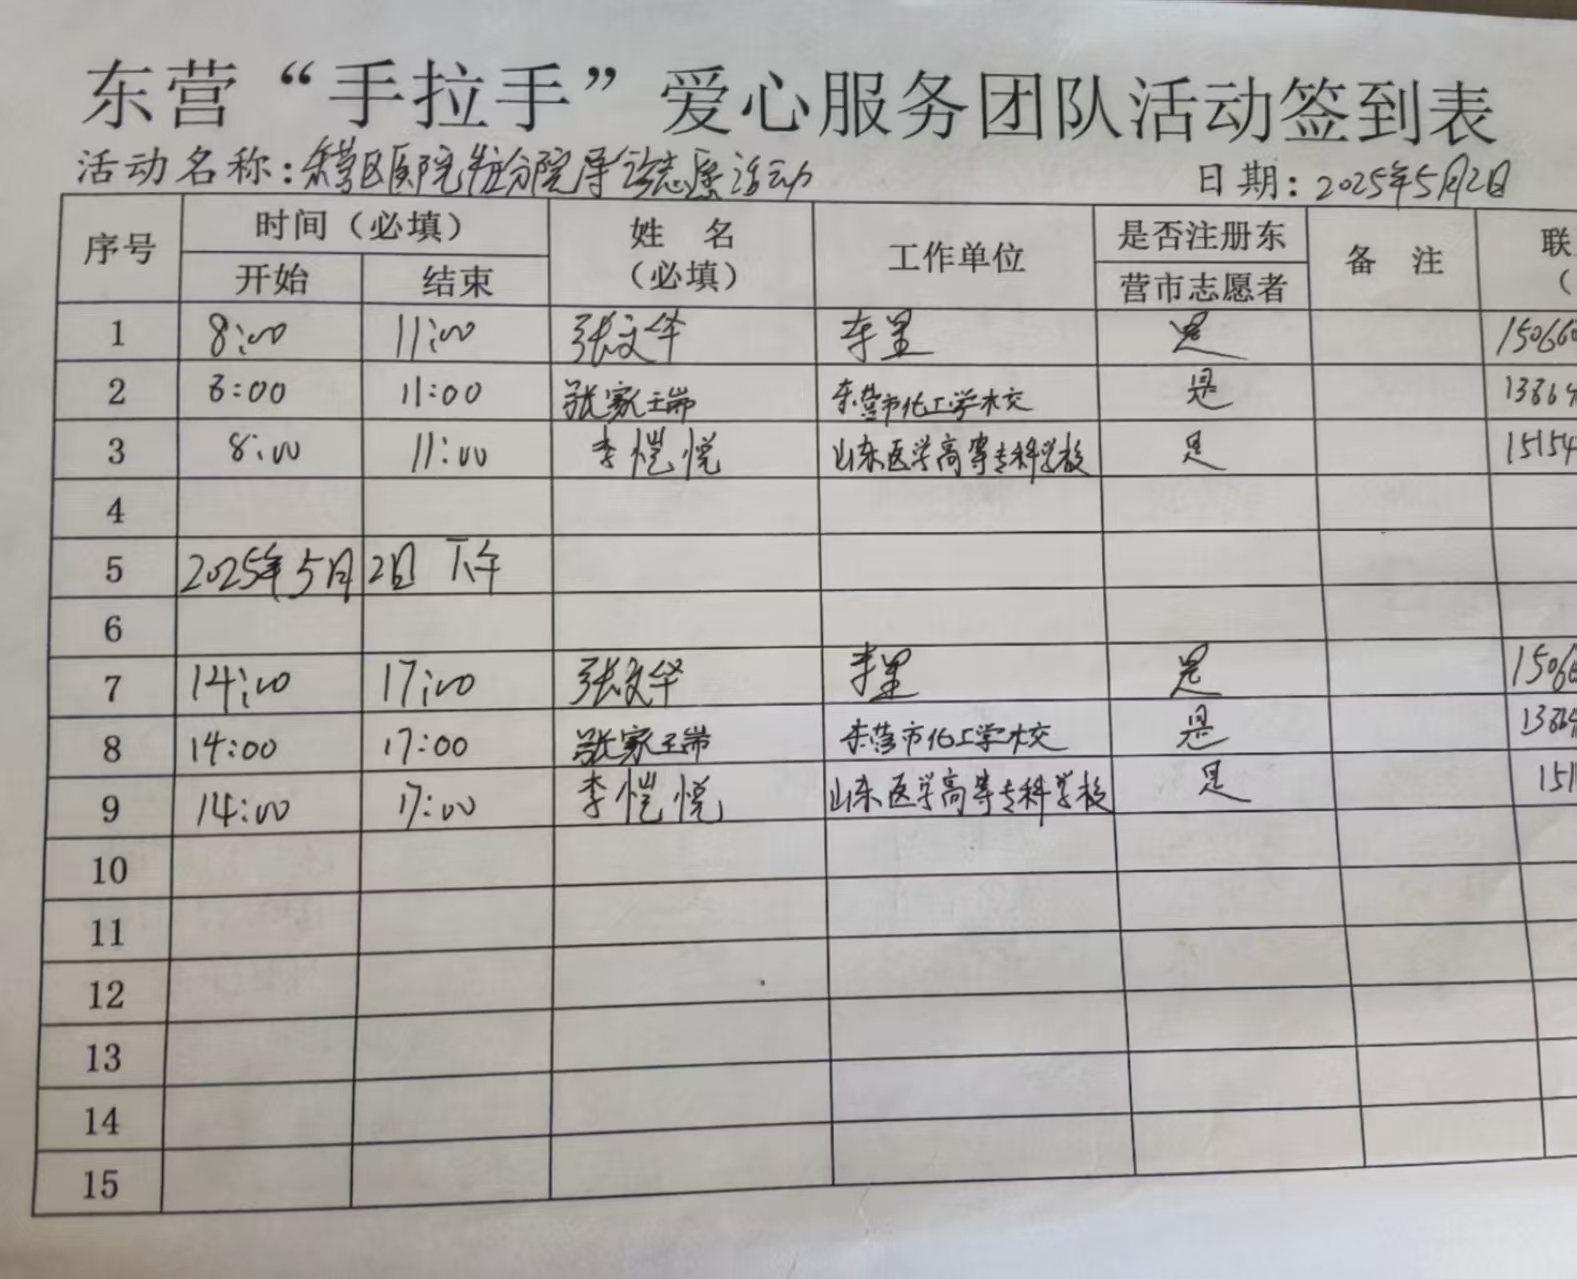 东营“手拉手”爱心服务团队活动签到表
活动名称：东营区医院 分院导诊志愿活动 日期：2025年5月2日
序号 时间（必填） 姓 名（必填） 工作单位 是否注册东营市志愿者 备 注 联
开始 结束
1 8:00 11:00 张文华 是 15066
2 8:00 11:00 张家瑞 东营市化工学校 是 13864
3 8:00 11:00 李恺悦 山东医学高等专科学校 是 15154
4
5 2025年5月2日 下午
6
7 14:00 17:00 张文华 是 15066
8 14:00 17:00 张家瑞 东营市化工学校 是 13864
9 14:00 17:00 李恺悦 山东医学高等专科学校 是 151
10
11
12
13
14
15